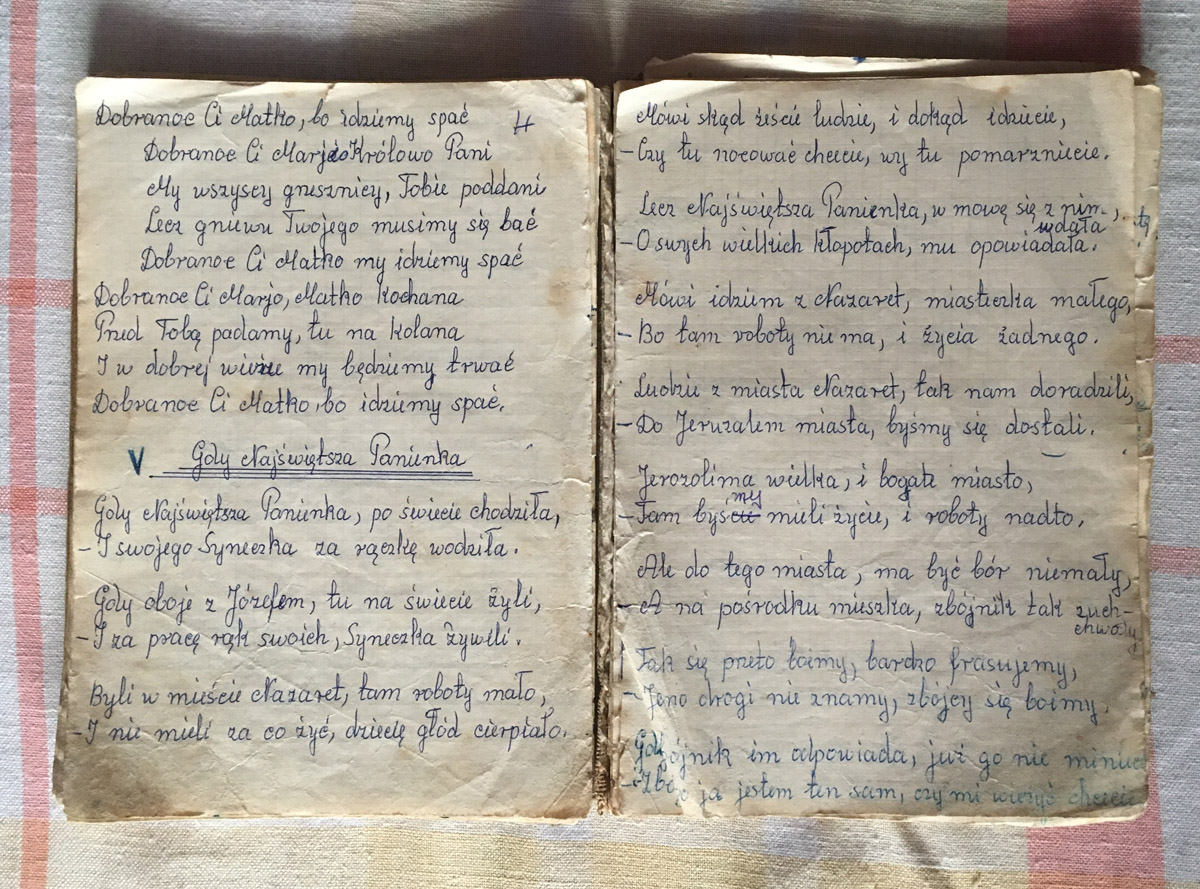 Dobranoc Ci Matko, bo idziemy spać
4
Dobranoc Ci Marjo Królowo Pani
My wszyscy grzesznicy, Tobie poddani
Lecz gniewu Twojego musimy się bać
Dobranoc Ci Matko my idziemy spać
Dobranoc Ci Marjo, Matko kochana
Przed Tobą padamy, tu na kolana
I w dobrej wierze my będziemy trwać
Dobranoc Ci Matko, bo idziemy spać.
V Gdy Najświętsza Panienka
Gdy Najświętsza Panienka, po świecie chodziła,
- I swojego Syneczka za rączkę wodziła.
Gdy oboje z Józefem, tu na świecie żyli,
- I za pracę rąk swoich, Syneczka żywili.
Byli w mieście Nazaret, tam roboty mało,
- I nie mieli za co żyć, dziecię głód cierpiało.
Mówi skąd żeście ludzie, i dokąd idziecie,
- Czy tu nocować chcecie, wy tu pomarzniecie.
Lecz Najświętsza Panienka, w mowę się z nim,
wdała
- O swych wielkich kłopotach, mu opowiadała.
Mówi idziem z Nazaret, miasteczka małego,
- Bo tam roboty nie ma, i życia żadnego.
Ludzie z miasta Nazaret, tak nam doradzili,
- Do Jeruzalem miasta, byśmy się dostali.
Jerozolima wielka, i bogate miasto,
my
- Tam byście mieli życie, i roboty nadto.
Ale do tego miasta, ma być bór niemały,
- A na pośrodku mieszka, zbójnik tak zuch-
chwały
Tak się przeto boimy, bardzo frasujemy,
- Jeno drogi nie znamy, zbójcy się boimy.
im odpowiada, już go nie
ja jestem ten sam, czy mi wierzyć chcecie